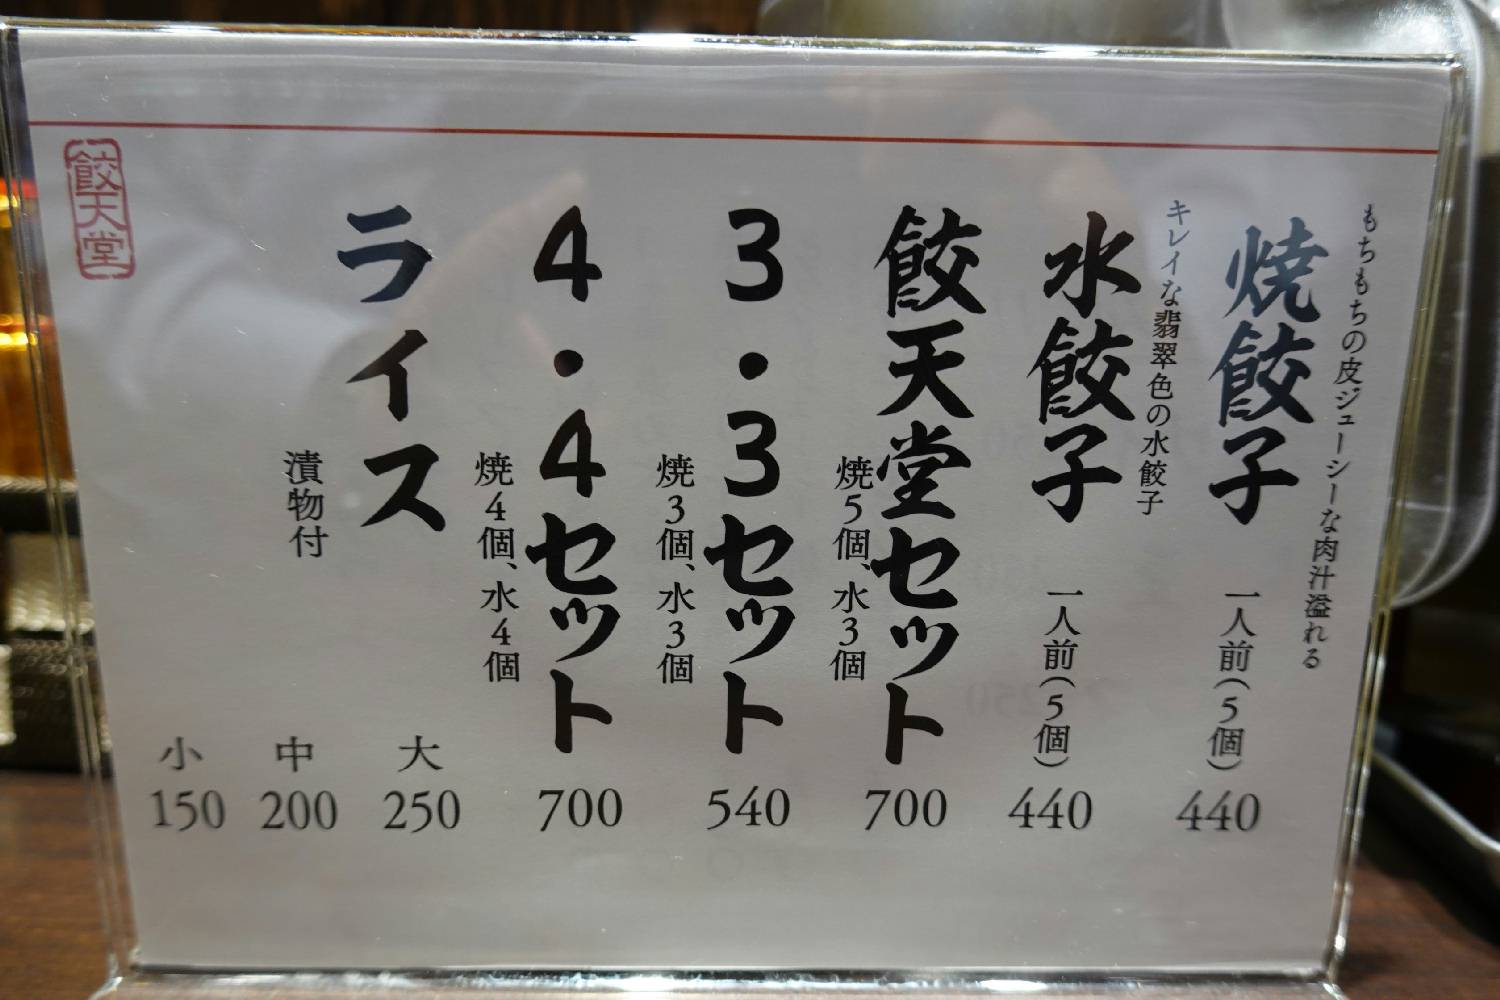 もちもちの皮ジューシーな肉汁溢れる
焼餃子 一人前(5個) 440
キレイな翡翠色の水餃子
水餃子 一人前(5個) 440
餃天堂セット 700
焼5個、水3個
3・3セット 540
焼3個、水3個
4・4セット 700
焼4個、水4個
ライス
漬物付
大 250
中 200
小 150
餃天堂